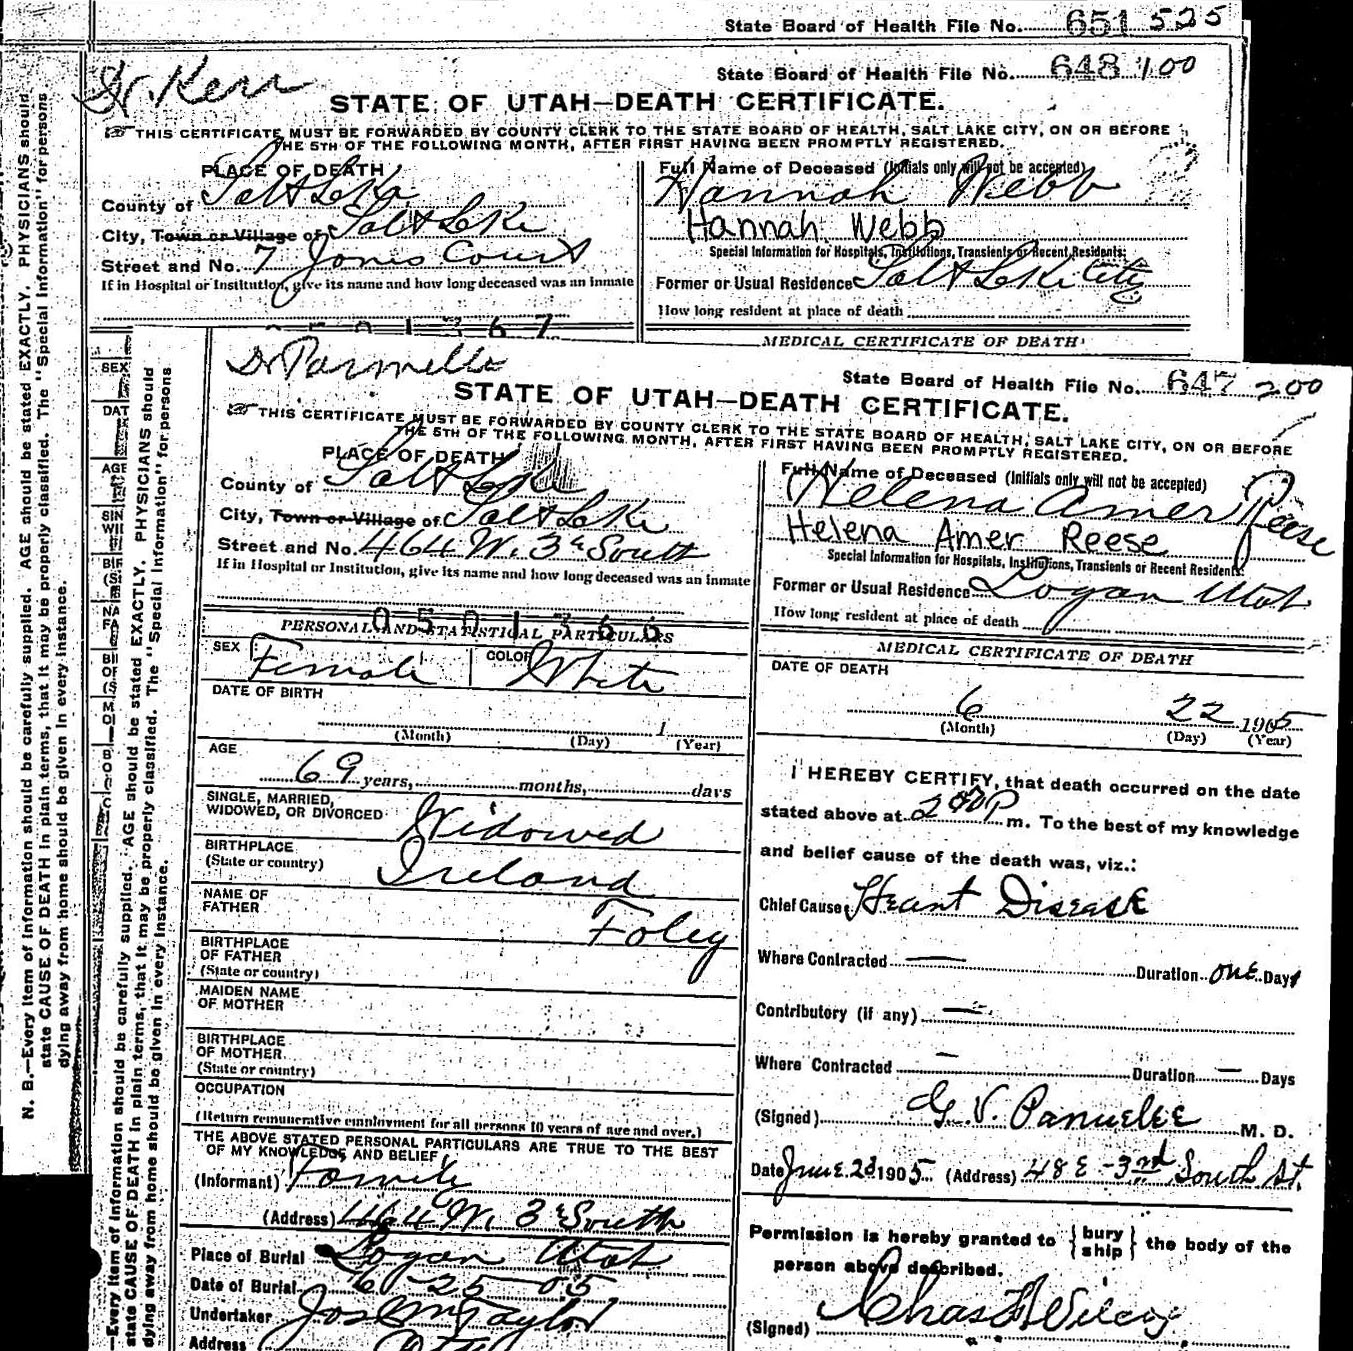 State Board of Health File No. 651 525
Dr. Kerr
State Board of Health File No. 648 100
STATE OF UTAH—DEATH CERTIFICATE.
THIS CERTIFICATE MUST BE FORWARDED BY COUNTY CLERK TO THE STATE BOARD OF HEALTH, SALT LAKE CITY, ON OR BEFORE
THE 5TH OF THE FOLLOWING MONTH, AFTER FIRST HAVING BEEN PROMPTLY REGISTERED.
PLACE OF DEATH
County of Salt Lake
City, Town or Village of Salt Lake
Street and No. 7 Jones Court
If in Hospital or Institution, give its name and how long deceased was an inmate
Full Name of Deceased (Initials only will not be accepted)
Hannah Webb
Hannah Webb
Special Information for Hospitals, Institutions, Transients or Recent Residents:
Former or Usual Residence Salt Lake City
How long resident at place of death
MEDICAL CERTIFICATE OF DEATH
SEX
DAT
AGE
SIN
WII
BIF
NA
FA
N. B.—Every item of information should be carefully supplied. AGE should be stated EXACTLY. PHYSICIANS should
state CAUSE OF DEATH in plain terms, that it may be properly classified. The "Special Information" for persons
dying away from home should be given in every instance.
—Every item of information should be carefully supplied. AGE should be stated EXACTLY. PHYSICIANS should
state CAUSE OF DEATH in plain terms, that it may be properly classified. The "Special Information" for persons
dying away from home should be given in every instance.
State Board of Health File No. 647 200
STATE OF UTAH—DEATH CERTIFICATE.
THIS CERTIFICATE MUST BE FORWARDED BY COUNTY CLERK TO THE STATE BOARD OF HEALTH, SALT LAKE CITY, ON OR BEFORE
THE 5TH OF THE FOLLOWING MONTH, AFTER FIRST HAVING BEEN PROMPTLY REGISTERED.
PLACE OF DEATH
County of Salt Lake
City, Town or Village of Salt Lake
Street and No. 464 W. 3d South
If in Hospital or Institution, give its name and how long deceased was an inmate
0501366
PERSONAL AND STATISTICAL PARTICULARS
SEX Female COLOR White
DATE OF BIRTH
1
(Month) (Day) (Year)
AGE
69 years, months, days
SINGLE, MARRIED,
WIDOWED, OR DIVORCED Widowed
BIRTHPLACE
(State or country) Ireland
NAME OF
FATHER Foley
BIRTHPLACE
OF FATHER
(State or country)
MAIDEN NAME
OF MOTHER
BIRTHPLACE
OF MOTHER
(State or country)
OCCUPATION
(Return remunerative employment for all persons 10 years of age and over.)
THE ABOVE STATED PERSONAL PARTICULARS ARE TRUE TO THE BEST
OF MY KNOWLEDGE AND BELIEF
(Informant) Family
(Address) 464 W. 3d South
Place of Burial Logan Utah
Date of Burial 6-25-05
Undertaker Jos Wm Taylor
Address City
Full Name of Deceased (Initials only will not be accepted)
Helena Amer Reese
Helena Amer Reese
Special Information for Hospitals, Institutions, Transients or Recent Residents:
Former or Usual Residence Logan Utah
How long resident at place of death
MEDICAL CERTIFICATE OF DEATH
DATE OF DEATH
6 22 1905
(Month) (Day) (Year)
I HEREBY CERTIFY, that death occurred on the date
stated above at 2 40 P m. To the best of my knowledge
and belief cause of the death was, viz.:
Chief Cause Heart Disease
Where Contracted — Duration one Day
Contributory (if any) —
Where Contracted — Duration — Days
(Signed) M. D.
Date June 23 1905 (Address) 48 E - 3rd South St.
Permission is hereby granted to { bury ship } the body of the
person above described.
(Signed) Chas H Wilcox